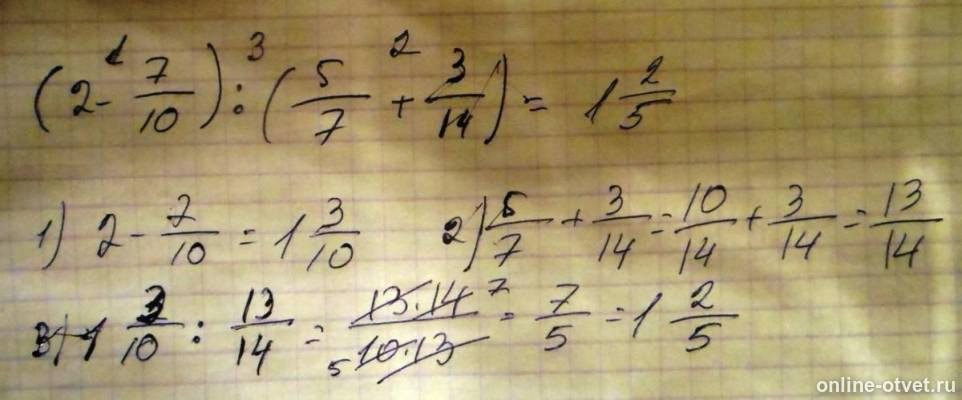 (2 - 7/10) : (5/7 + 3/14) = 1 2/5
1) 2 - 7/10 = 1 3/10 2) 5/7 + 3/14 = 10/14 + 3/14 = 13/14
3) 1 3/10 : 13/14 = 13·14 7/5 10·13 = 7/5 = 1 2/5
online-otvet.ru